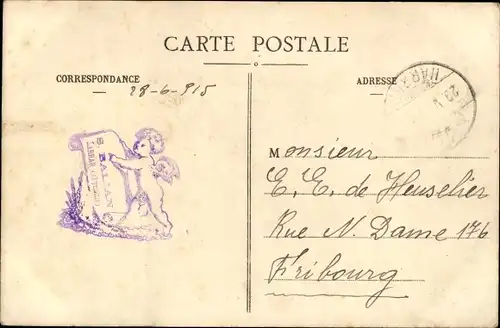 CARTE POSTALE
CORRESPONDANCE
28-6-915
ADRESSE
Monsieur
E. E. de Heuselier
Rue N. Dame 176
Fribourg
S. BALLAN